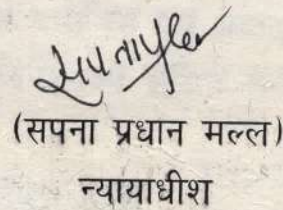 (सपना प्रधान मल्ल)
न्यायाधीश